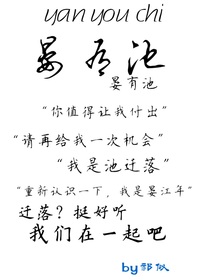 yan you chi
晏有池
晏有池
“你值得让我付出”
“请再给我一次机会”
“我是池迁落”
“重新认识一下，我是晏江年”
迁落？挺好听
我们在一起吧
by郁似